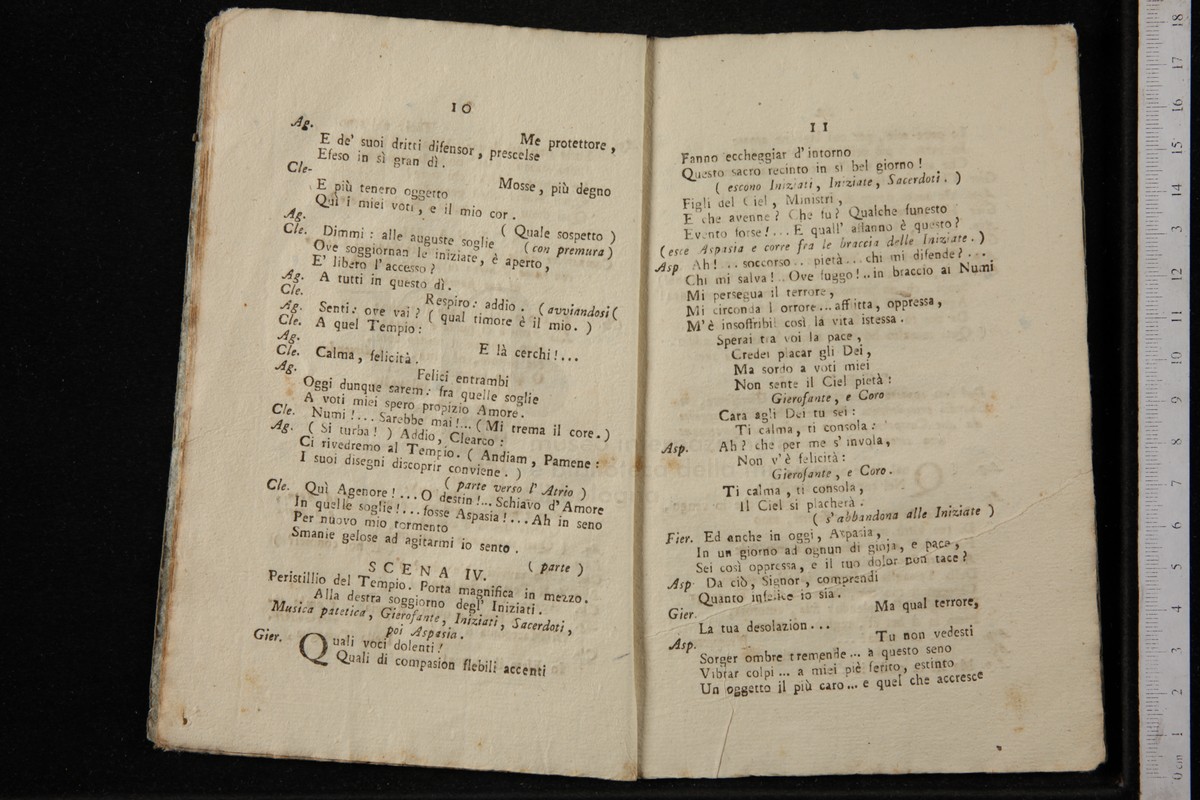 10
Ag.
Me protettore,
E de' suoi dritti difensor, prescelse
Efeso in sì gran dì.
Cle-
Mosse, più degno
E più tenero oggetto
Quì i miei voti, e il mio cor.
Ag. ( Quale sospetto )
Cle. Dimmi: alle auguste soglie (con premura)
Ove soggiornan le iniziate, è aperto,
E' libero l'accesso?
Ag. A tutti in questo dì.
Cle.
Respiro: addio. (avviandosi(
Ag. Senti: ove vai? ( qual timore è il mio. )
Cle. A quel Tempio:
Ag.
E là cerchi!...
Cle. Calma, felicità.
Ag.
Felici entrambi
Oggi dunque sarem: fra quelle soglie
A voti miei spero propizio Amore.
Cle. Numi!... Sarebbe mai!... ( Mi trema il core.)
Ag. ( Si turba! ) Addio, Clearco:
Ci rivedremo al Tempio. ( Andiam, Pamene:
I suoi disegni discoprir conviene. )
( parte verso l' Atrio )
Cle. Quì Agenore!... O destin!... Schiavo d'Amore
In quelle soglie!... fosse Aspasia!... Ah in seno
Per nuovo mio tormento
Smanie gelose ad agitarmi io sento.
( parte )
SCENA IV.
Peristillio del Tempio. Porta magnifica in mezzo.
Alla destra soggiorno degl' Iniziati.
Musica patetica, Gierofante, Iniziati, Sacerdoti,
poi Aspasia.
Gier. Quali voci dolenti!
Quali di compasion flebili accenti
11
Fanno eccheggiar d'intorno
Questo sacro recinto in sì bel giorno!
( escono Iniziati, Iniziate, Sacerdoti. )
Figli del Ciel, Ministri,
E che avenne? Che fu? Qualche funesto
Evento forse!... E quall' affanno è questo?
(esce Aspasia e corre fra le braccia delle Iniziate.)
Asp Ah!... soccorso... pietà... chi mi difende?...
Chi mi salva!.. Ove fuggo!.. in braccio ai Numi
Mi persegua il terrore,
Mi circonda l orrore... affitta, oppressa,
M'è insoffribil così la vita istessa.
Sperai tra voi la pace,
Credei placar gli Dei,
Ma sordo a voti miei
Non sente il Ciel pietà:
Gierofante, e Coro
Cara agli Dei tu sei:
Ti calma, ti consola:
Asp. Ah? che per me s'invola,
Non v'è felicità:
Gierofante, e Coro.
Ti calma, ti consola,
Il Ciel si placherà.
( s'abbandona alle Iniziate )
Fier. Ed anche in oggi, Aspasia,
In un giorno ad ognun di gioja, e pace,
Sei così oppressa, e il tuo dolor non tace?
Asp- Da ciò, Signor, comprendi
Quanto infelice io sia.
Gier.
Ma qual terrore,
La tua desolazion...
Asp.
Tu non vedesti
Sorger ombre tremende... a questo seno
Vibrar colpi... a miei piè ferito, estinto
Un oggetto il più caro... e quel che accresce